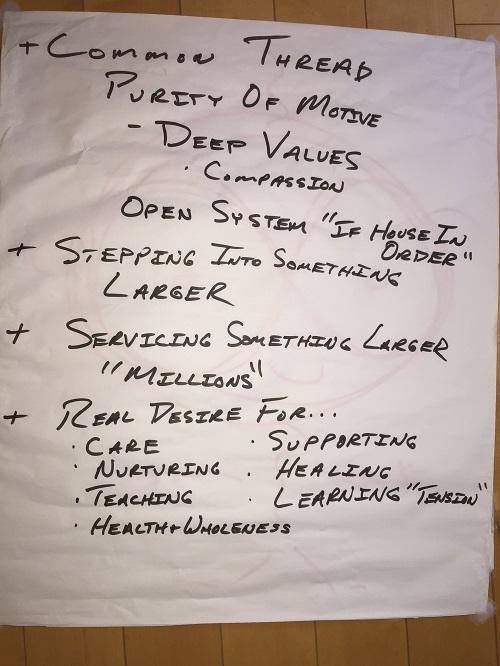 + Common Thread
Purity Of Motive
- Deep Values
· Compassion
Open System "If House In
Order"
+ Stepping Into Something
Larger
+ Servicing Something Larger
"Millions"
+ Real Desire For...
· Care · Supporting
· Nurturing · Healing
· Teaching · Learning "Tension"
· Health + Wholeness